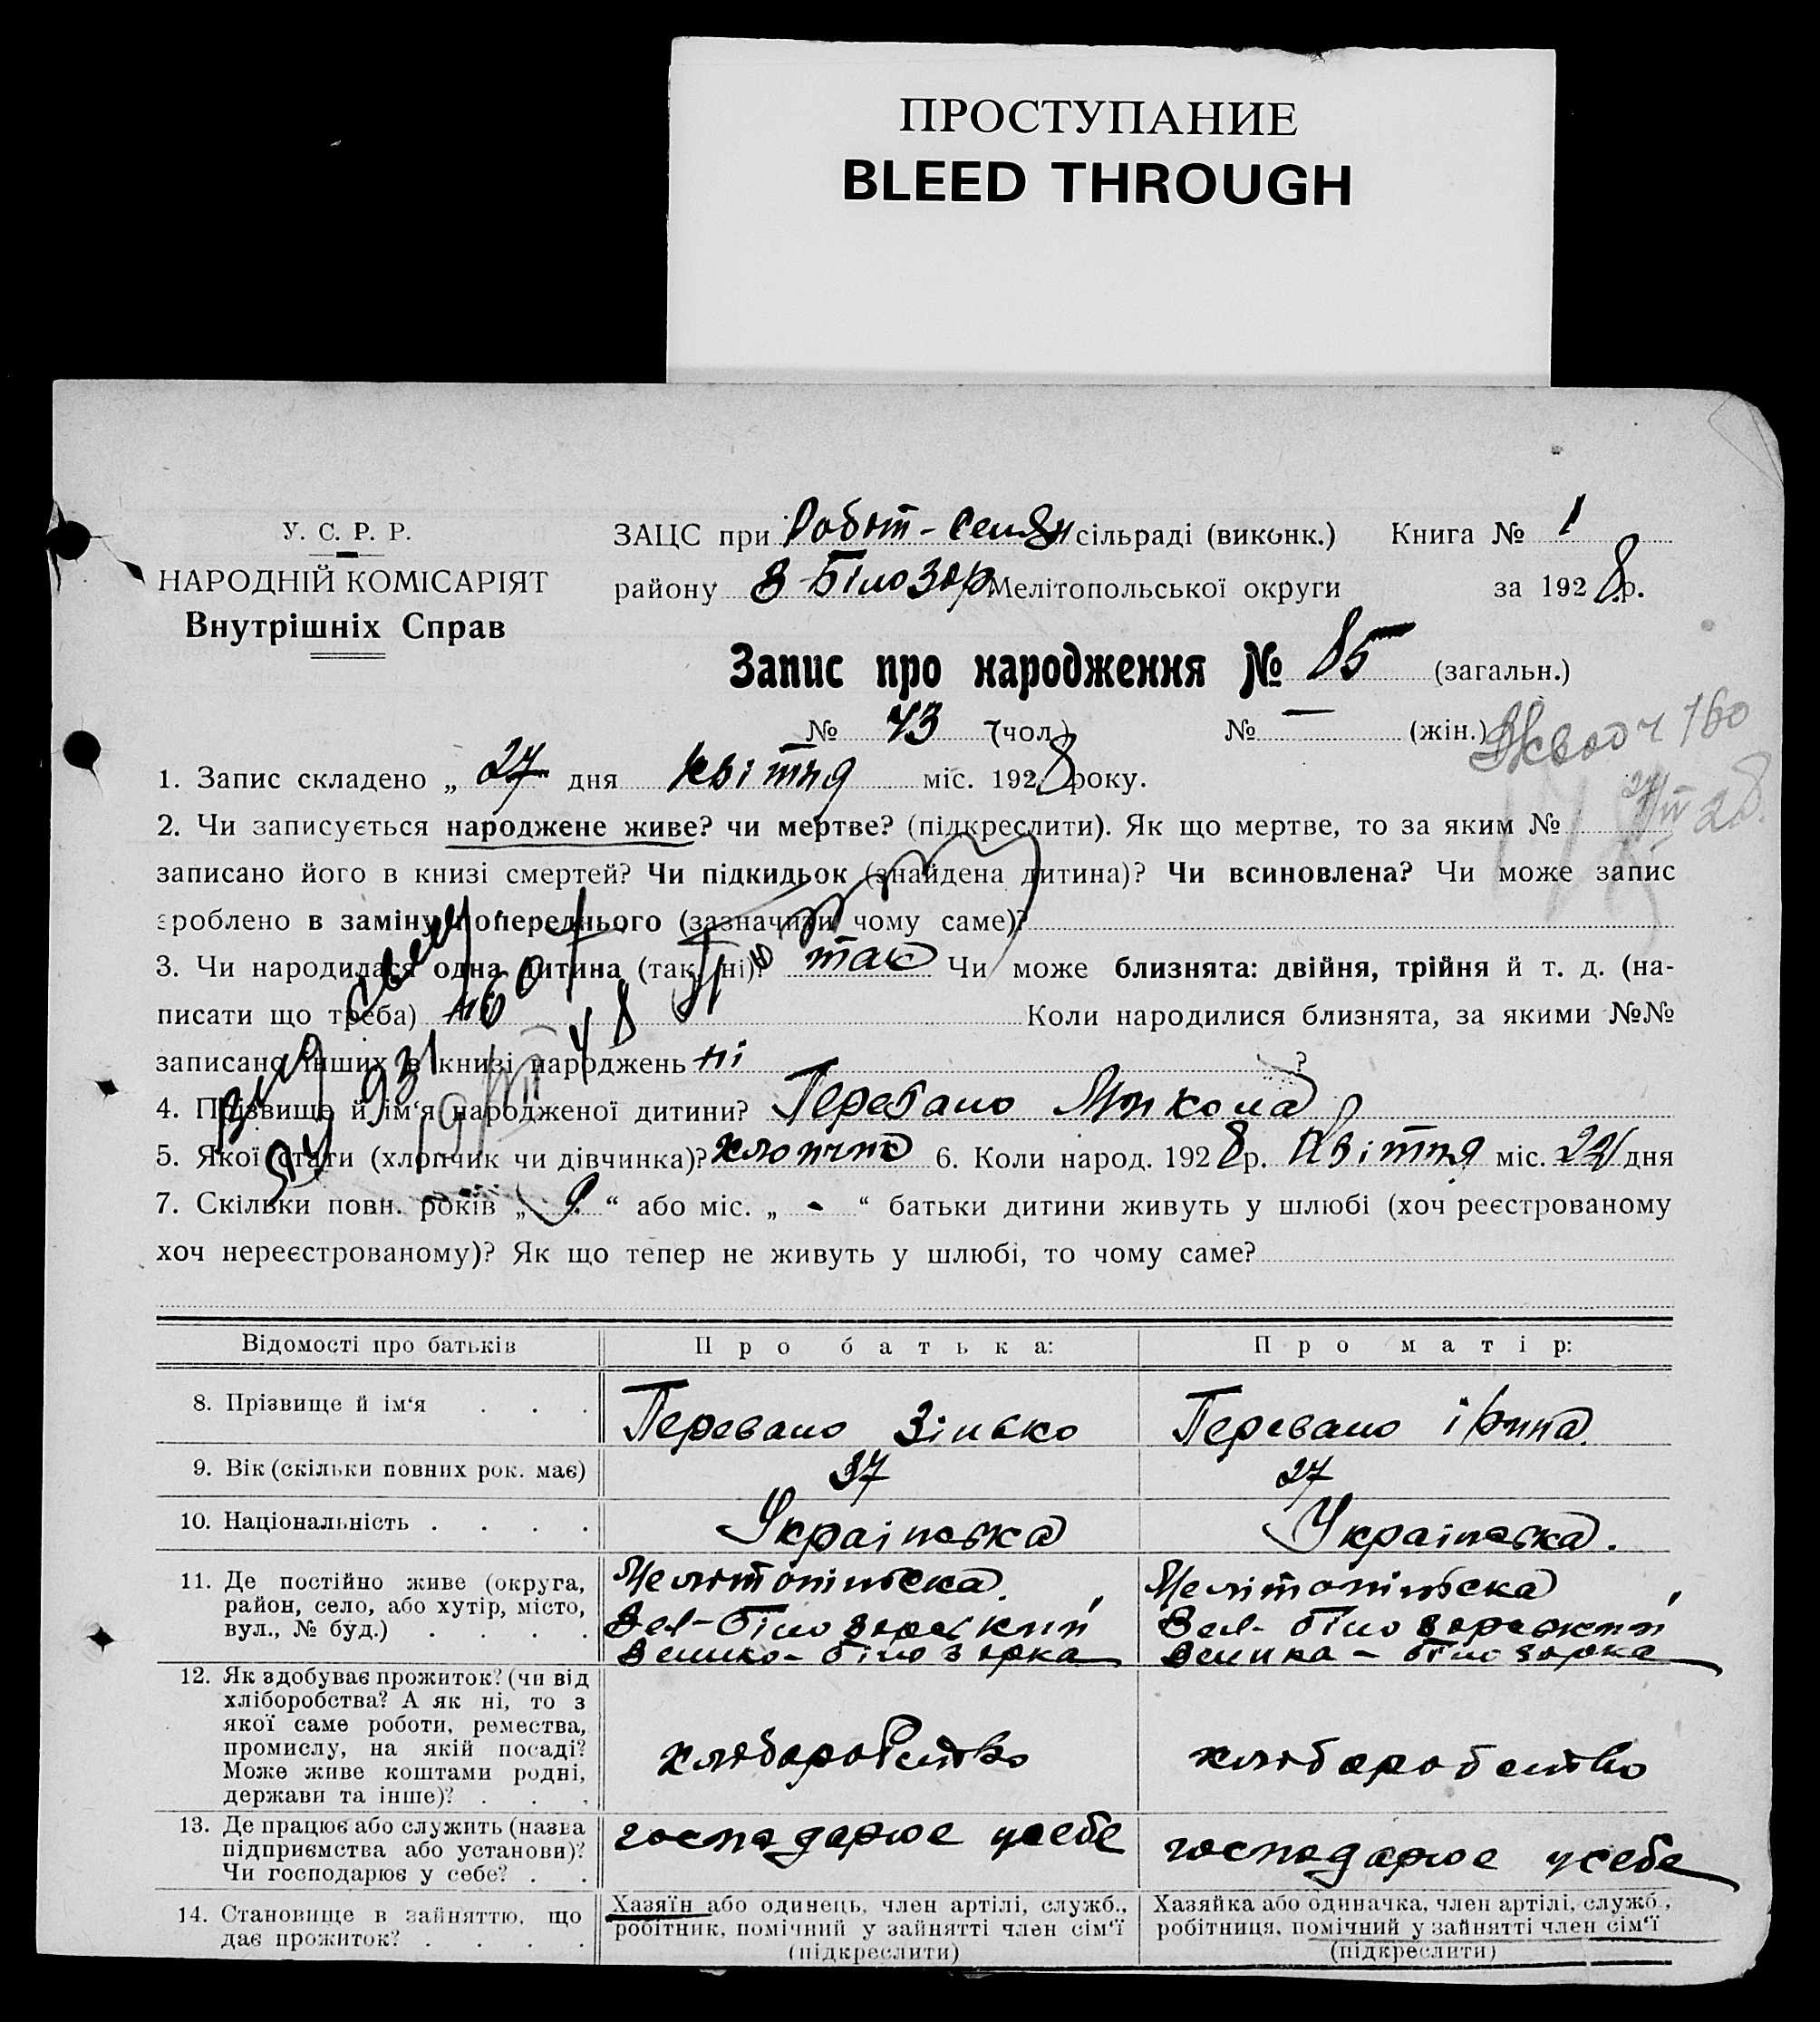 ПРОСТУПАНИЕ
BLEED THROUGH
У. С. Р. Р.
НАРОДНІЙ КОМІСАРІЯТ
Внутрішніх Справ
ЗАЦС при Робіт-Селян сільраді (виконк.) Книга № 1
району В-Білозор Мелітопольської округи за 1928 р.
Запис про народження № 85 (загальн.)
№ 43 (чол.) № — (жін.)
1. Запис складено „ 27 дня квітня міс. 1928 року.
2. Чи записується народжене живе? чи мертве? (підкреслити). Як що мертве, то за яким №
записано його в книзі смертей? Чи підкидьок (знайдена дитина)? Чи всиновлена? Чи може запис
зроблено в заміну попереднього (зазначити чому саме)?
3. Чи народилася одна дитина (так, ні)? так Чи може близнята: двійня, трійня й т. д. (на-
писати що треба) Коли народилися близнята, за якими №№
записано інших в книзі народжень ні ?
4. Прізвище й ім‘я народженої дитини? Перевало Микола
5. Якої стати (хлопчик чи дівчинка)? хлопчик 6. Коли народ. 1928 р. Квітня міс. дня
7. Скільки повн. років „ 9 “ або міс. „ - “ батьки дитини живуть у шлюбі (хоч реєстрованому
хоч нереєстрованому)? Як що тепер не живуть у шлюбі, то чому саме?
Відомості про батьків Про батька: Про матір:
8. Прізвище й ім‘я . . . Перевало Зінько Перевало Ірина
9. Вік (скільки повних рок. має) 37 27
10. Національність . . . . Українська Українська.
11. Де постійно живе (округа, Мелітопільська, Мелітопільська,
район, село, або хутір, місто, Вел-Білозерський Вел-Білозерський
вул., № буд.) . . . . Велико-Білозорка Велика-Білозорка
12. Як здобуває прожиток? (чи від
хліборобства? А як ні, то з
якої саме роботи, ремества,
промислу, на якій посаді? хліборобство хліборобство
Може живе коштами родні,
держави та інше)? . . .
13. Де працює або служить (назва господарює усебе господарює усебе
підприємства або установи)?
Чи господарює у себе? . .
14. Становище в зайняттю, що Хазяїн або одинець, член артілі, служб., Хазяйка або одиначка, член артілі, служб.,
дає прожиток? . . . . робітник, помічний у зайнятті член сім‘ї робітниця, помічний у зайнятті член сім‘ї
(підкреслити) (підкреслити)